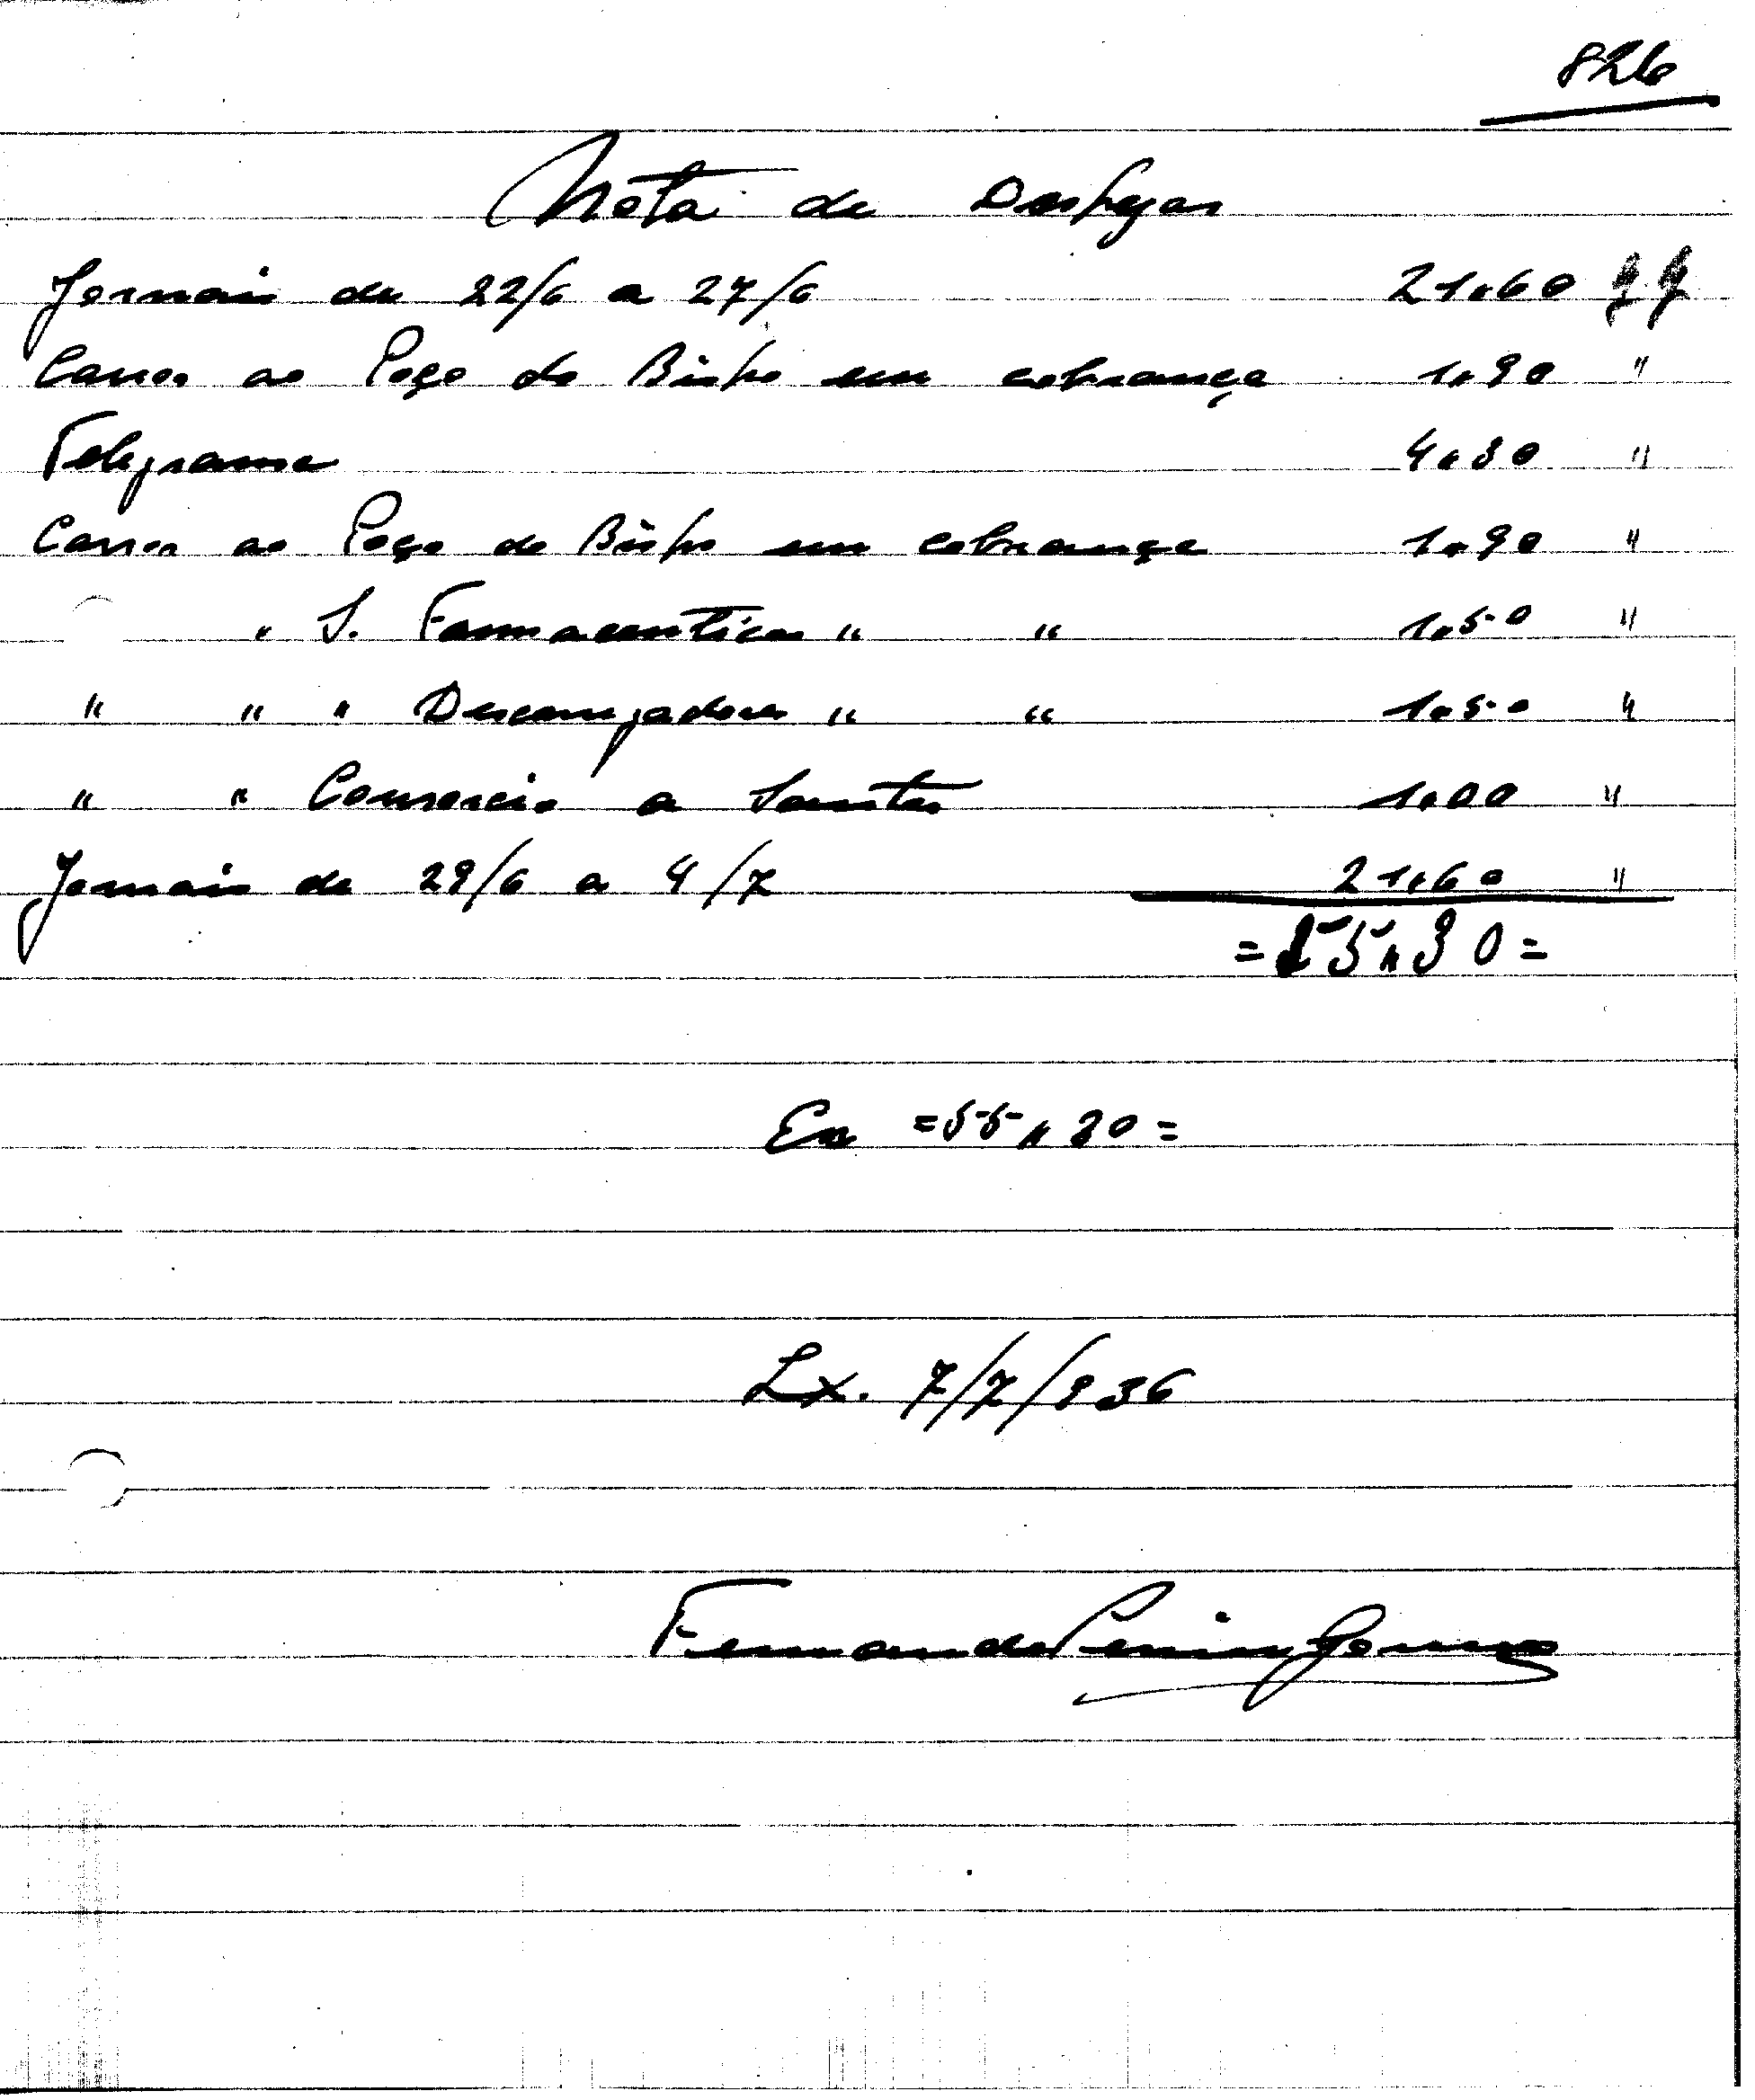 826
Nota de Despezas
Jornais de 22/6 a 27/6 21,60
Carros ao Poço do Bispo em cobrança 1,90 "
Telegrama 4,30 "
Carros ao Poço do Bispo em cobrança 1,90 "
" S. Farmaceuticos " " 1,50 "
" " " Descarregadores " " 1,50 "
" " Comercio a Santos 1,00 "
Jornais de 29/6 a 4/7 21,60 "
= 55,30 =
En = 55,30 =
Lx. 7/7/936
Fernando Gomes